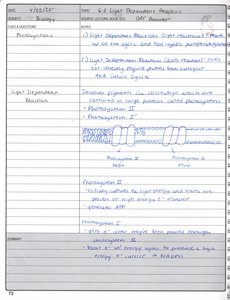 DATE 4/22/21
TOPIC 6.6 Light Dependent Reactions
SUBJECT Biology
SOURCE: LECTURE, BOOK, ETC.
CUES & QUESTIONS
NOTES
Photosynthesis
1) Light Dependent Reactions (light reactions)
up of the cyclic and non-cyclic
2) Light Independent Reactions (dark reactions)
not directly require photons from sunlight
AKA Calvin Cycle
Light Dependent
Reaction
pigments in chlorophyll which are
contained in large proteins called photosystems
• Photosystem II
• Photosystem I
Photosystem II
P680
Photosystem I
P700
Photosystem II
• initially captures the light energy and starts the
process of high energy e⁻ transfer
• generates ATP
Photosystem I
• gets e⁻ after they've been passed through
photosystem II
• boost e⁻ w/ energy again to produce a high
energy e⁻ carrier → NADPH
SUMMARY
72